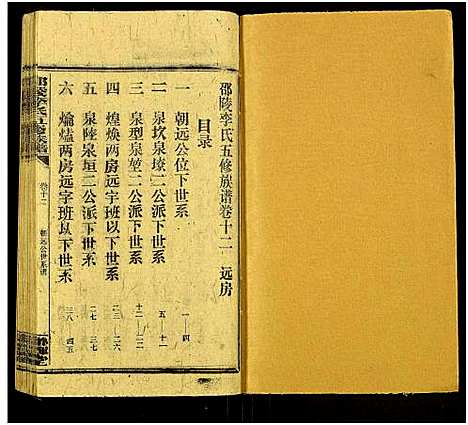 邵陵李氏五修族谱卷十二 远房
目录
一 朝远公位下世系 一—四
二 泉坎泉塝二公派下世系 五—十一
三 泉型泉堃二公派下世系
四 煌焕两房远宇班以下世系 二三—二六
五 泉陸泉垣二公派下世系 二七—三七
六 两房远字班以下世系 三八—四五
卷十二
朝远公世系